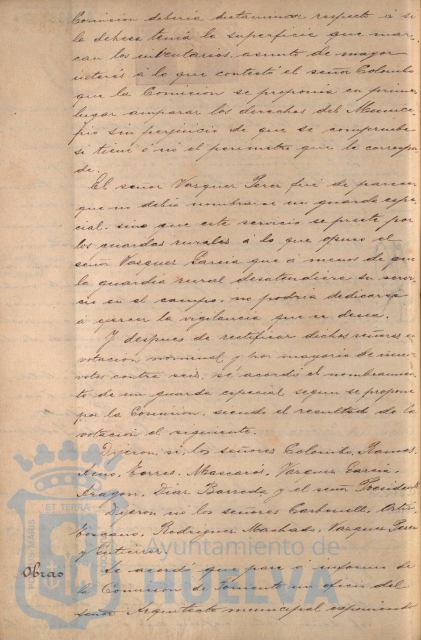 Comision deberia dictaminar respecto á si
la dehesa tenia la superficie que mar-
can los inventarios, asunto de mayor
interés á lo que contestó el señor Colombo
que la Comision se proponia en primer
lugar amparar los derechos del Munici-
pio sin perjuicio de que se compruebe
si tiene ó no el perimetro que le correspon
de.
El señor Vazquez Perez fué de parecer
que no debia nombrarse un guarda espe-
cial, sino que este servicio se preste por
los guardas rurales, á lo que opuso el
señor Vazquez Garcia que á menos de que
la guardia rural desatendiera su servi-
cio en el campo, no podria dedicarse
á ejercer la vigilancia que se desea.
Y despues de rectificar dichos señores en
votacion nominal y por mayoria de nueve
votos contra seis, se acordó el nombramien-
to de un guarda especial segun se propone
por la Comision, siendo el resultado de la
votacion el siguiente.
Dijeron si, los señores Colombo, Ramos,
Torres, Mascarós, Vazquez Garcia,
Aragon, Diaz Barreda y el señor Presidente
Dijeron no los señores Carbonell, Ortiz
Toscano, Rodriguez Machado, Vazquez Perez
y Gutierrez.
Obras
Se acordó que pase á informe de
la Comision de Fomento un oficio del
señor Arquitecto municipal exponiendo
Ayuntamiento de
HUELVA